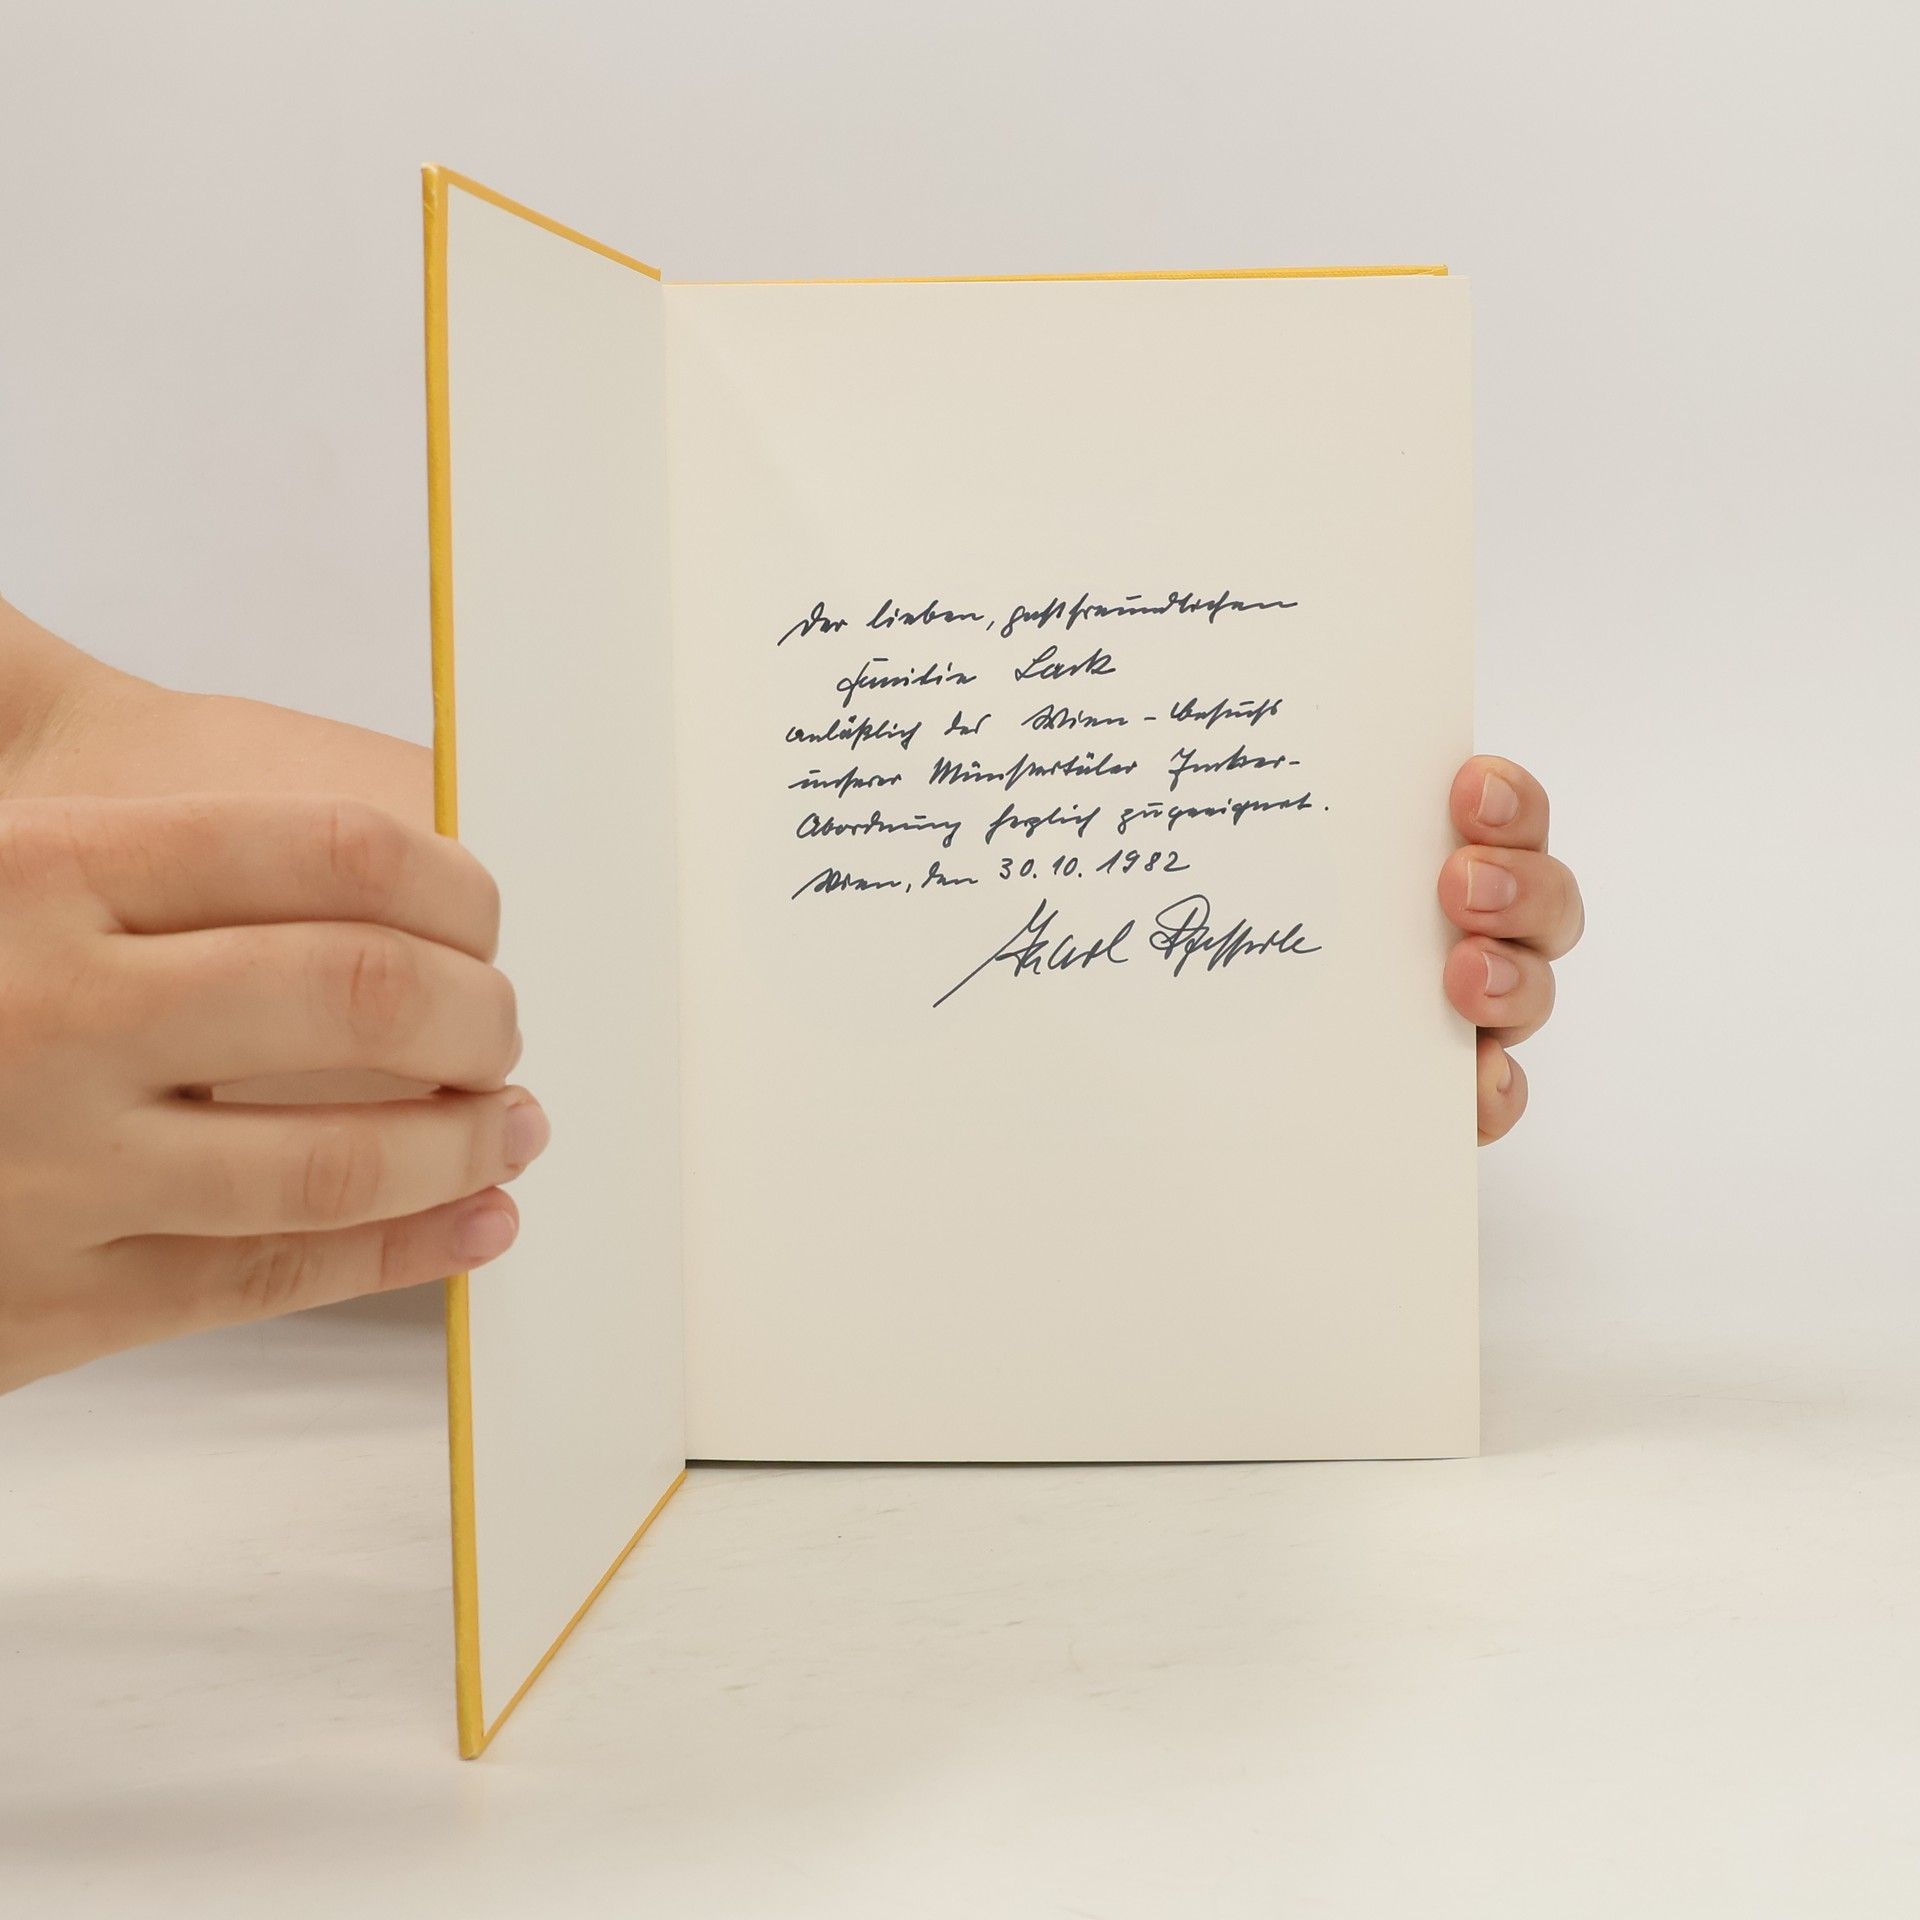 Der lieben, gastfreundlichen
Familie Lack
anläßlich des Wien-Besuchs
unserer Münstertäler Imker-
Abordnung herzlich zugeeignet.
Wien, den 30. 10. 1982
Karl Pfefferle